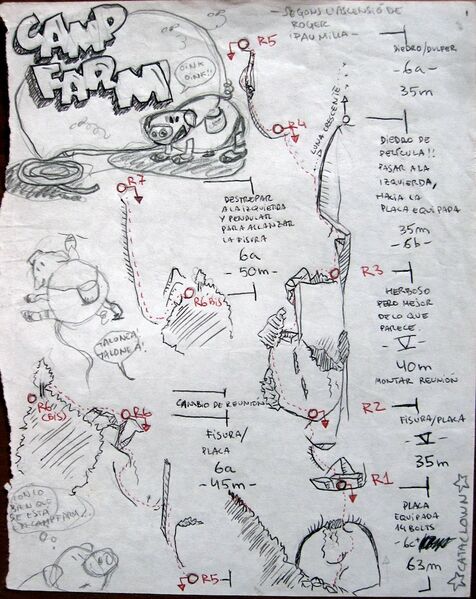 CAMP
FARM
OINK
OINK!!
- SEGONS L'ASCENSIÓ DE
ROGER
I PAU MILLA -
R5
DIEDRO/DULFER
- 6a -
35m
R4
LUNA CRECIENTE
DIEDRO DE
PELÍCULA!!
PASAR A LA
IZQUIERDA,
HACIA LA
PLACA EQUIPADA
35m
- 6b -
R7
DESTREPAR
A LA IZQUIERDA
Y PENDULAR
PARA ALCANZAR
LA FISURA
6a
- 50m -
R6 BIS
R3
HERBOSO
PERO MEJOR
DE LO QUE
PARECE.
- V -
40m
MONTAR REUNIÓN
R6
(BIS)
R6
CAMBIO DE REUNIÓN
FISURA/
PLACA
6a
- 45m -
R2
FISURA/PLACA
- V -
35m
R1
PLACA
EQUIPADA
14 BOLTS
- 6c
63m
R5
CATACLOWN